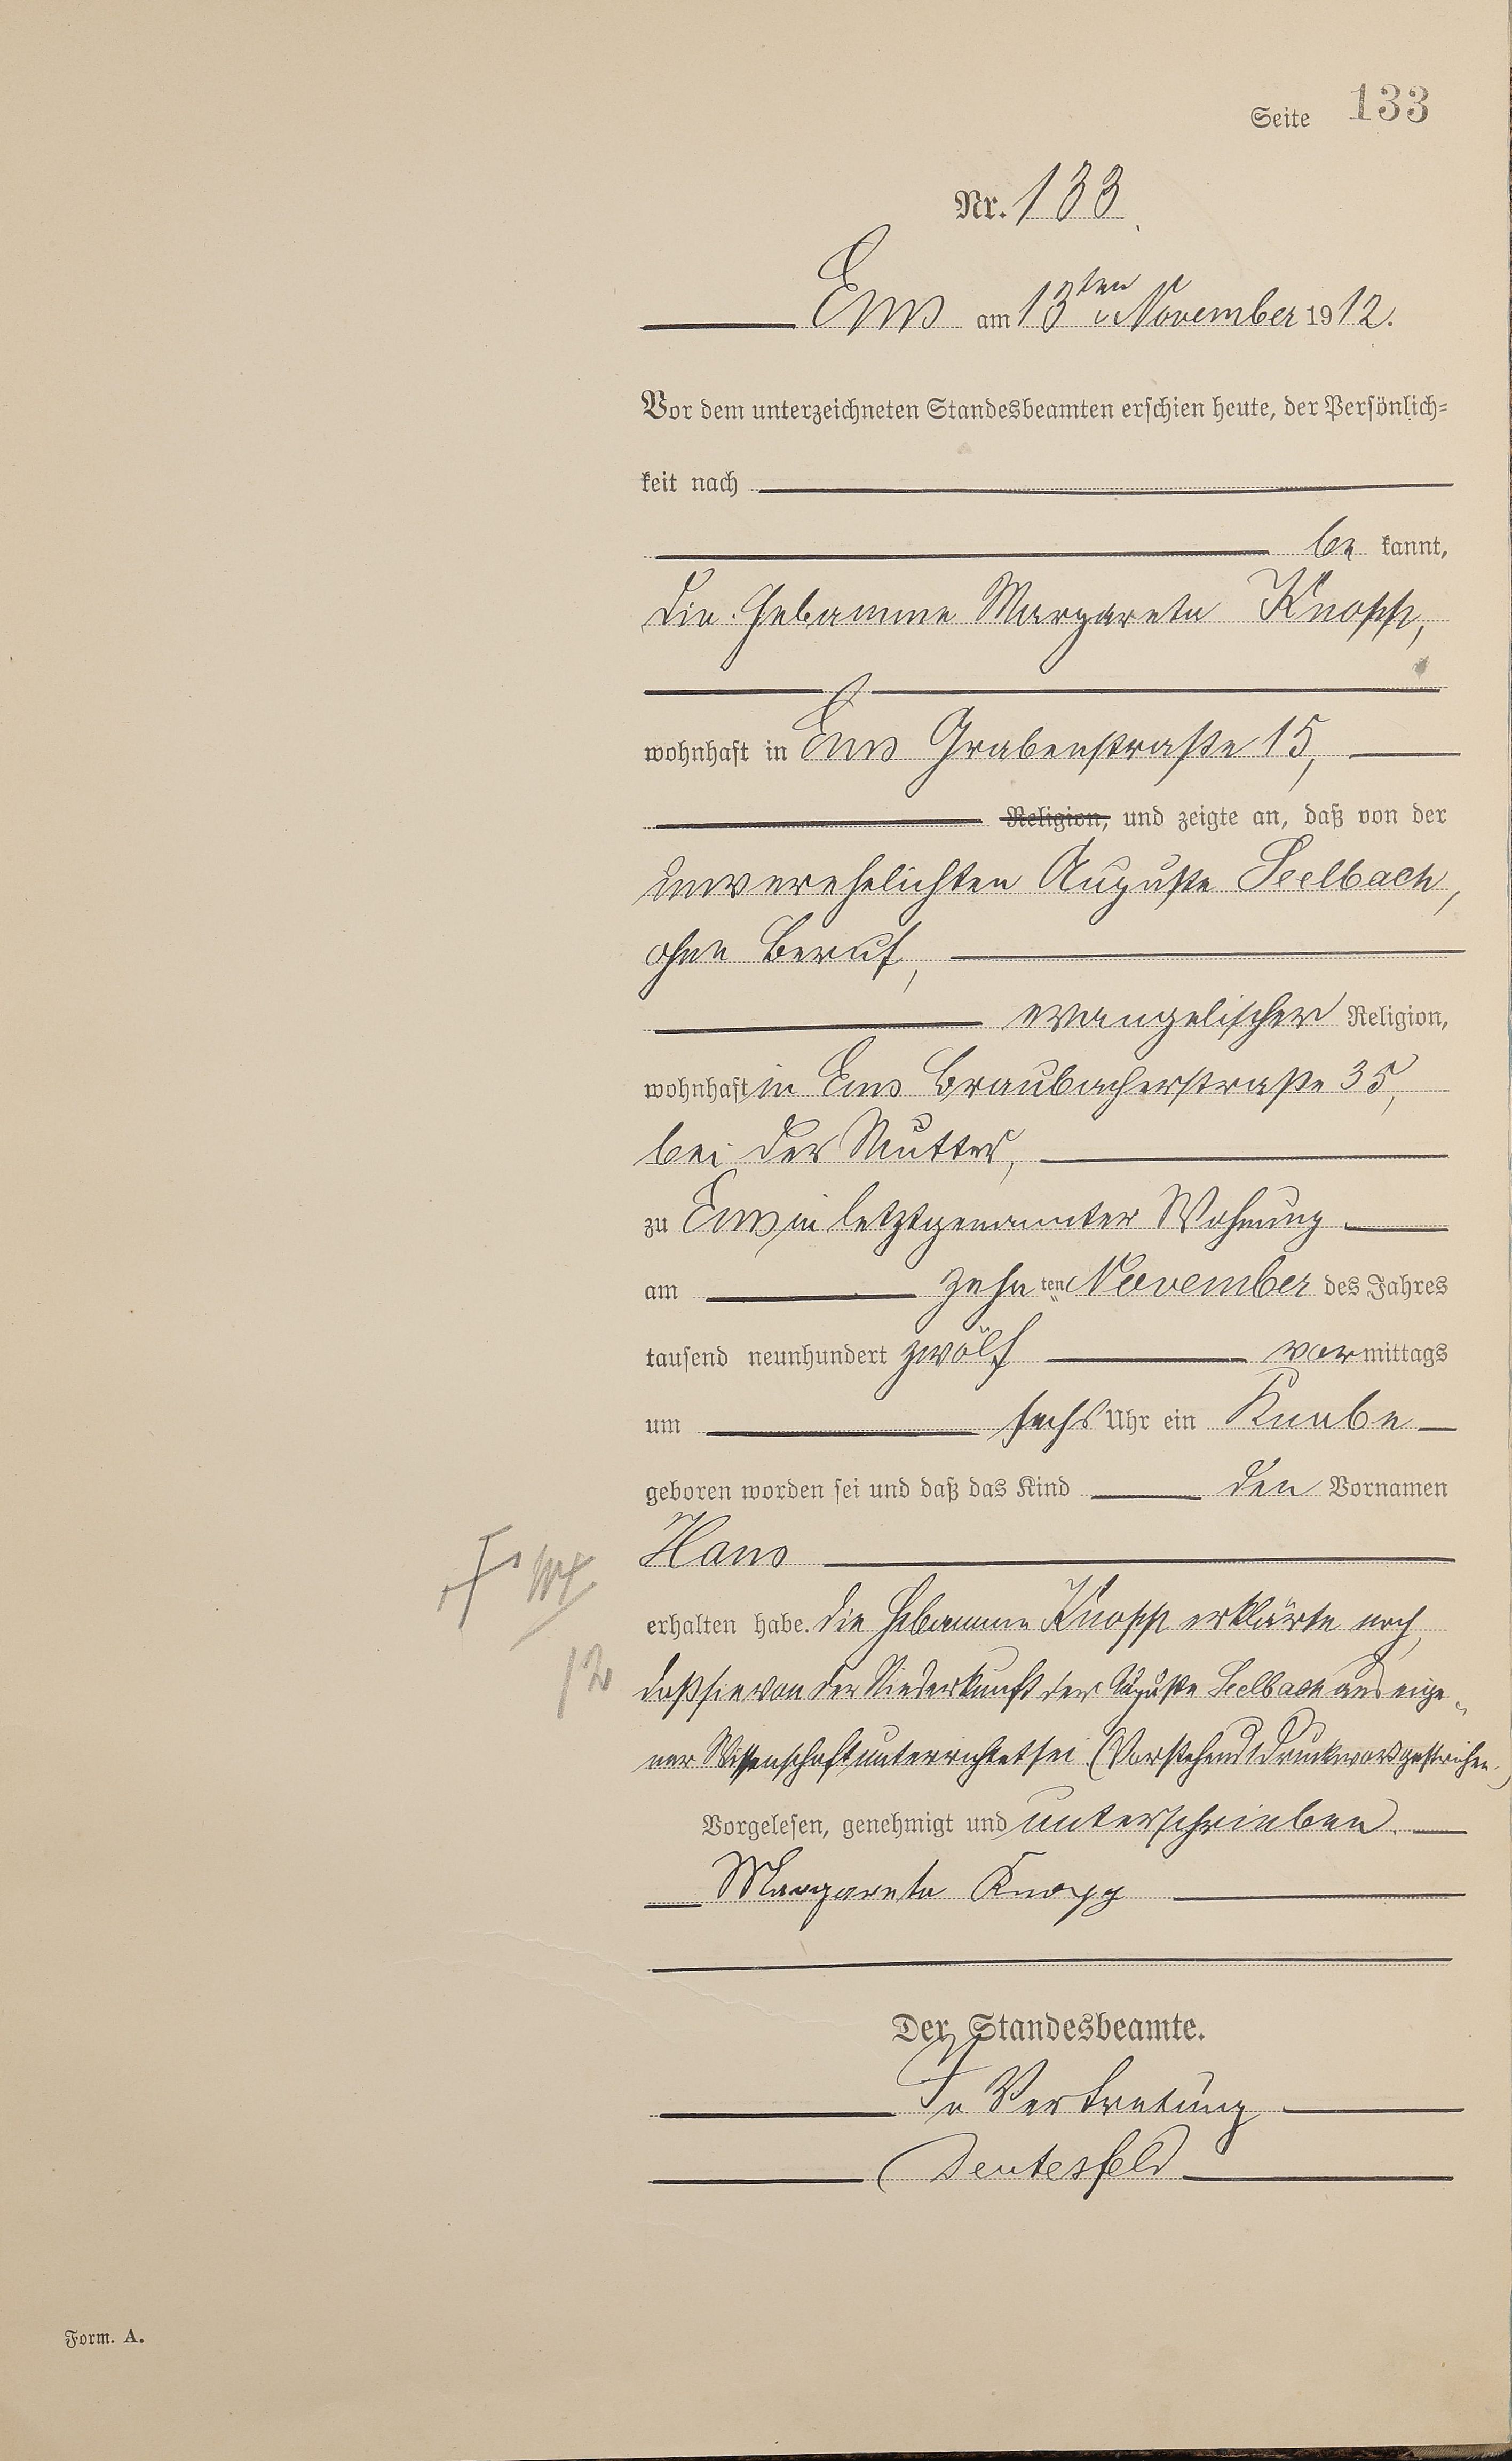 Seite 133
Nr. 133
Ems am 13ten November 1912.
Vor dem unterzeichneten Standesbeamten erschien heute, der Persönlich-
keit nach
be kannt,
die Hebamme Margareta Knopp,
wohnhaft in Ems Grabenstraße 15,
Religion, und zeigte an, daß von der
unverehelichten Auguste Seelbach,
ohne Beruf,
evangelischer Religion,
wohnhaft in Ems Braubacherstraße 35,
bei der Mutter,
zu Ems in letztgenannter Wohnung
am zehnten November des Jahres
tausend neunhundert zwölf vormittags
um sechs Uhr ein Knabe
geboren worden sei und daß das Kind den Vornamen
Hans
erhalten habe. Die Hebamme Knopp erklärte noch,
daß sie von der Niederkunft der Auguste Seelbach aus eige-
ner Wissenschaft unterrichtet sei (Vorstehend 1 Druckwort gestrichen.)
12
Vorgelesen, genehmigt und unterschrieben.
Margareta Knopp
Der Standesbeamte.
In Vertretung
Deutesfeld
Form. A.